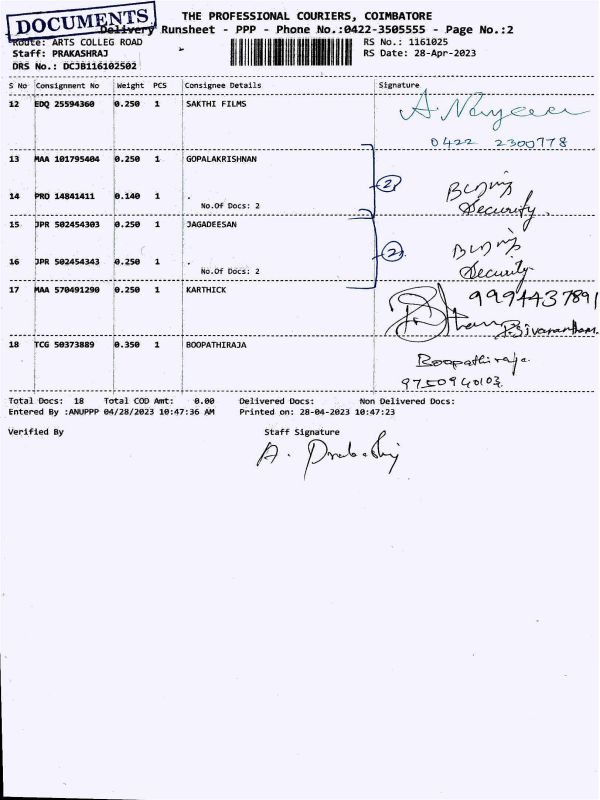 DOCUMENTS
THE PROFESSIONAL COURIERS, COIMBATORE
Delivery Runsheet - PPP - Phone No.:0422-3505555 - Page No.:2
Route: ARTS COLLEG ROAD
RS No.: 1161025
Staff: PRAKASHRAJ
RS Date: 28-Apr-2023
DRS No.: DCJB116102502
S No Consignment No Weight PCS Consignee Details Signature
12 EDQ 25594360 0.250 1 SAKTHI FILMS
0422 2300778
13 MAA 101795404 0.250 1 GOPALAKRISHNAN
(2)
14 PRO 14841411 0.140 1 .
No.Of Docs: 2
Security.
15 JPR 502454303 0.250 1 JAGADEESAN
(2)
16 JPR 502454343 0.250 1 .
No.Of Docs: 2
Security
17 MAA 570491290 0.250 1 KARTHICK
9994437891
18 TCG 50373889 0.350 1 BOOPATHIRAJA
Boopathiraja
9750940103
Total Docs: 18 Total COD Amt: 0.00 Delivered Docs: Non Delivered Docs:
Entered By :ANUPPP 04/28/2023 10:47:36 AM Printed on: 28-04-2023 10:47:23
Verified By Staff Signature